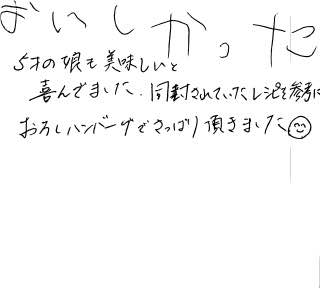 おいしかった
5才の娘も美味しいと
喜んでました。同封されていたレシピを参考に
おろしハンバーグでさっぱり頂きました